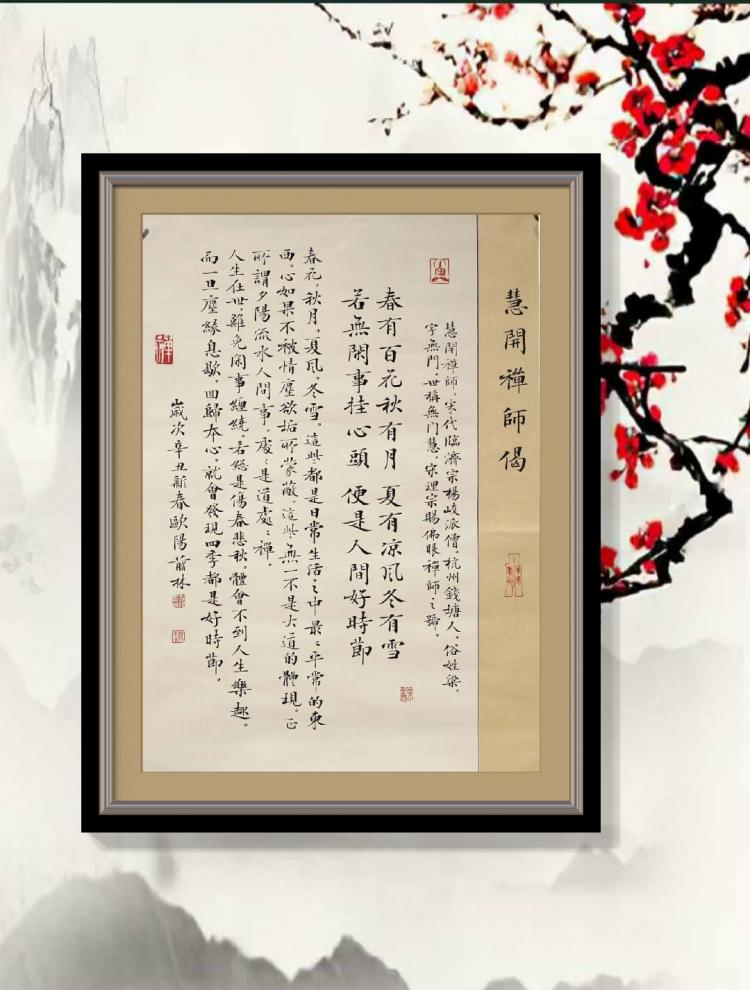 慧開禪師偈
慧開禪師。宋代臨濟宗楊岐派僧。杭州錢塘人。俗姓梁。
字無門。世稱無门慧。宋理宗賜佛眼禪師之號。
春有百花秋有月 夏有凉风冬有雪
若無閑事挂心頭 便是人間好時節
春花,秋月,夏风,冬雪。這些都是日常生活之中最々平常的東
西。心如果不被情塵欲垢所蒙蔽。這些無一不是大道的體現。正
所謂夕陽流水人間事。處々是道處々禪。
人生在世,難免閑事纏繞。若總是傷春悲秋,體會不到人生樂趣。
而一旦塵緣息歇,回歸本心,就會發現四季都是好時節。
歲次辛丑新春歐陽林
禪